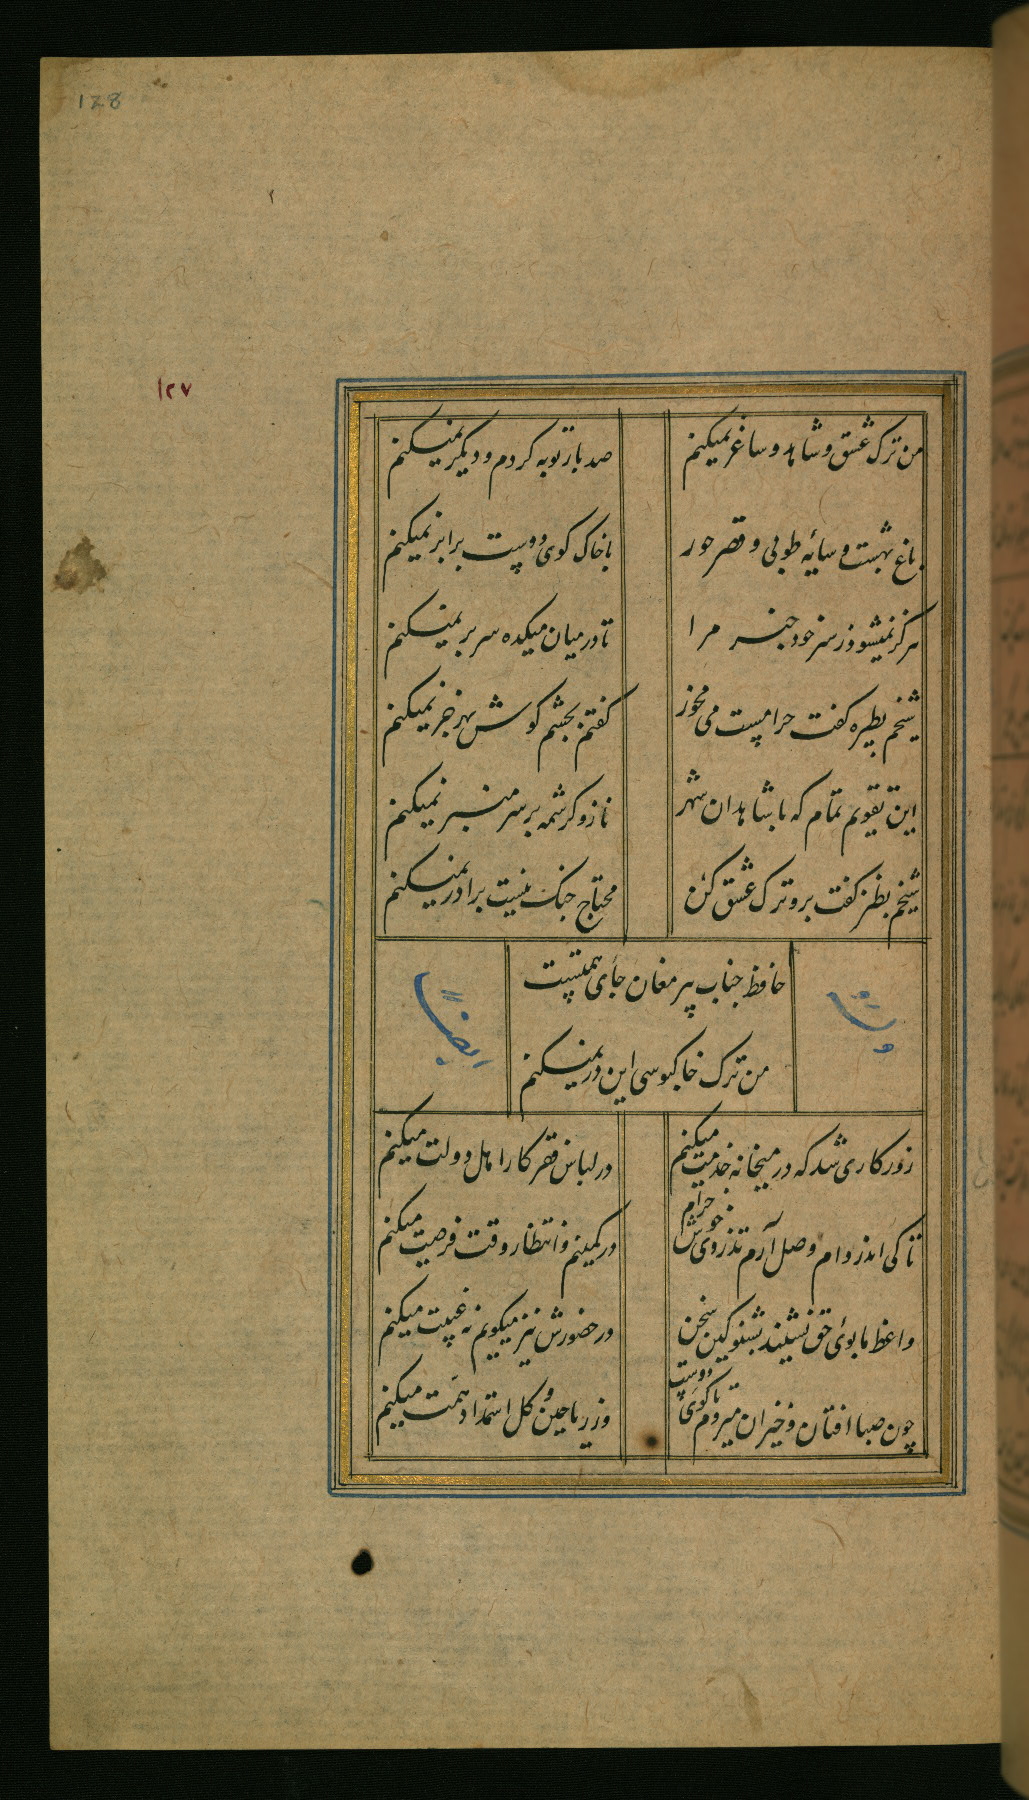 128
١٢٧
من ترک عشق و شاهد و ساغر نمیکنم
صد بار توبه کردم و دیگر نمیکنم
باغ بهشت و سایهٔ طوبی و قصر حور
با خاک کوی دوست برابر نمیکنم
هرگز نمیشود ز سر خود خبر مرا
تا در میان میکده سر بر نمیکنم
شیخم بطیره گفت حرامست می مخور
گفتم بچشم گوش بهر خر نمیکنم
این تقویم تمام که با شاهدان شهر
ناز و کرشمه بر سر منبر نمیکنم
شیخم بطنز گفت برو ترک عشق کن
محتاج جنگ نیست برادر نمیکنم
حافظ جناب پیر مغان جای همتست
من ترک خاکبوسی این در نمیکنم
وله
ایضاً
روزکاری شد که در میخانه خدمت میکنم
در لباس فقر کار اهل دولت میکنم
تا کی اندر دام وصل آرم تذروی خوش خرام
در کمینم و انتظار وقت فرصت میکنم
واعظ ما بوی حق نشنید بشنو کین سخن
در حضورش نیز میگویم نه غیبت میکنم
چون صبا افتان و خیزان میروم تا کوی دوست
وز ریاحین و گل استمداد همت میکنم